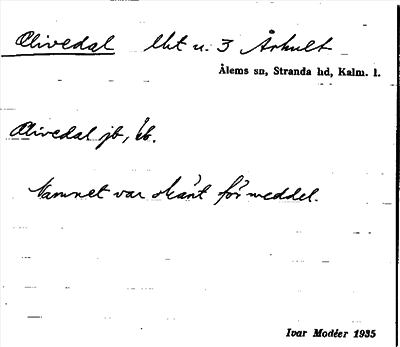 Olivedal lht u. 3 Århult
Ålems sn, Stranda hd, Kalm. l.
Olivedal jb, kb.
Namnet var okänt för meddel.
Ivar Modéer 1935